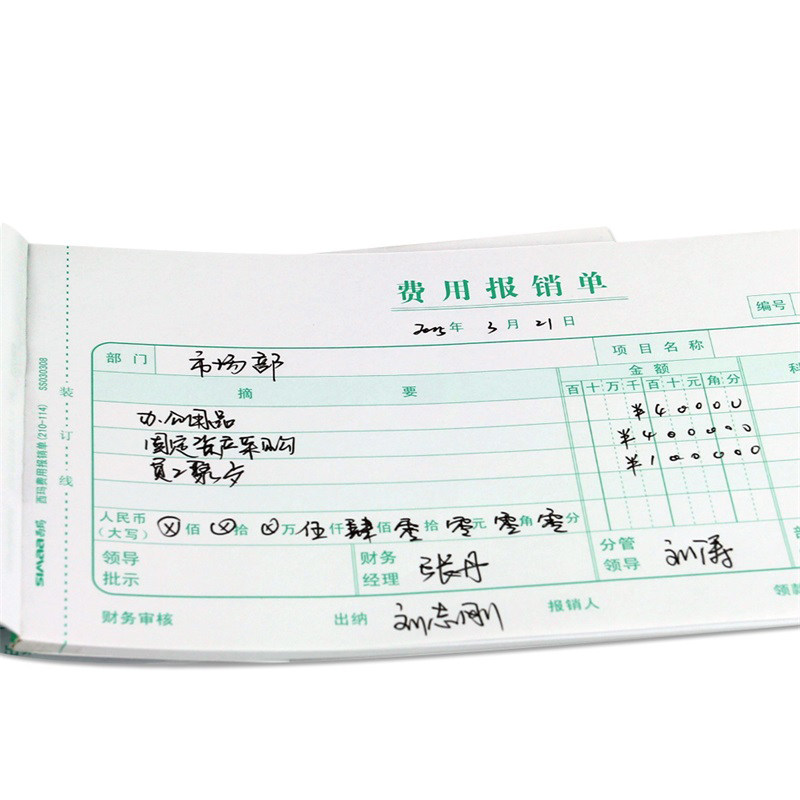 费用报销单
2015年 3月 21日
编号
部门 市场部 项目名称
摘要 金额 科
百十万千百十元角分
办公用品 ¥40000
固定资产采购 ¥400000
员工聚会 ¥100000
人民币(大写) ⊗佰 ⊗拾 ⊗万 伍仟 肆佰 零拾 零元 零角 零分
领导批示 财务经理 张丹 分管领导 刘涛
财务审核 出纳 刘志刚 报销人 领款
装订线
西玛费用报销单(210-114) SS030308
SIMAA 西玛